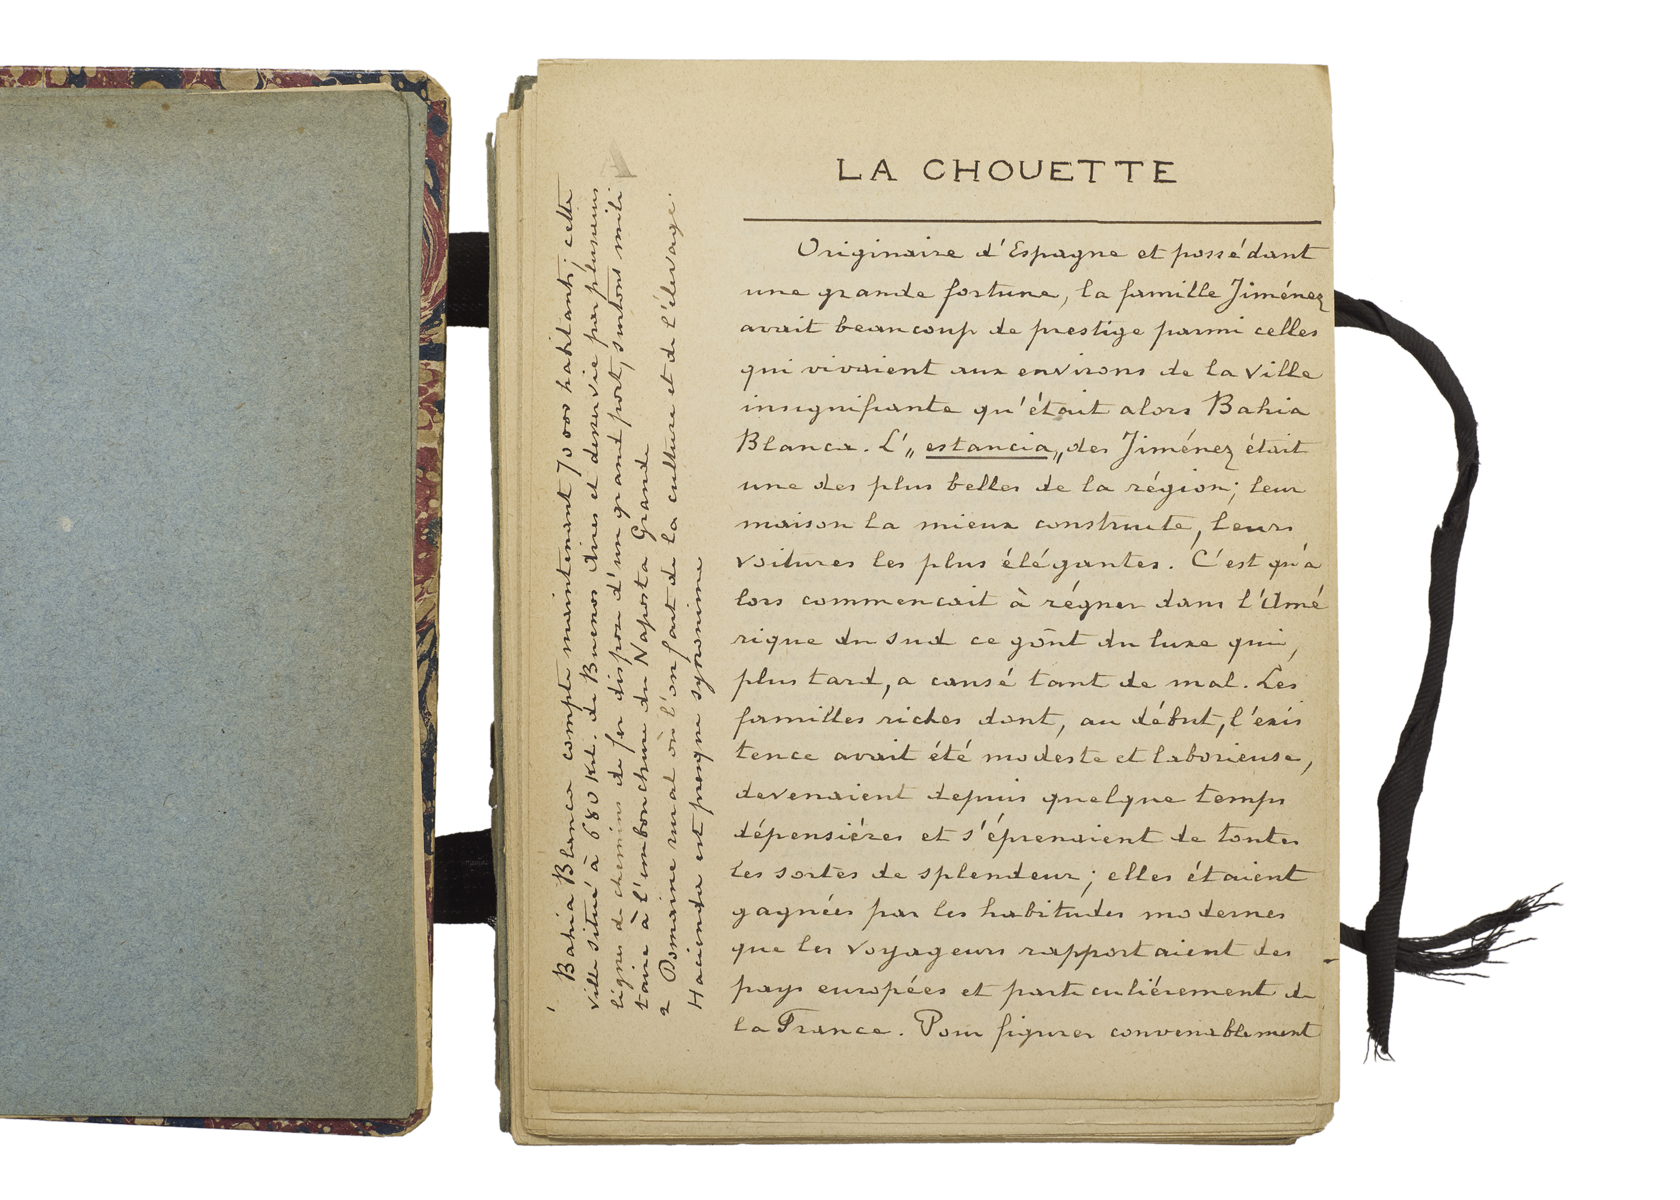 LA CHOUETTE
Originaire d'Espagne et possédant
une grande fortune, la famille Jiménez
avait beaucoup de prestige parmi celles
qui vivaient aux environs de la ville
insignifiante qu'était alors Bahia
Blanca. L'„ estancia „ des Jiménez était
une des plus belles de la région; leur
maison la mieux construite, leurs
voitures les plus élégantes. C'est qu'a
lors commencait à régner dans l'Amé
rique du sud ce goût du luxe qui,
plus tard, a causé tant de mal. Les
familles riches dont, au début, l'exis
tence avait été modeste et laborieuse,
devenaient depuis quelque temps
dépensiéres et s'éprenaient de toutes
les sortes de splendeur; elles étaient
gagnées par les habitudes modernes
que les voyageurs rapportaient des
pays européés et particuliérement de
la France. Pour figurer convenablement
1 Bahia Blanca compte maintenant 70 000 habitants; cette
ville situé à 680 Kil. de Buenos Aires et desservie par plusieurs
lignes de chemins de fer dispose d'un grand port, surtout mili
taire à l'embouchure du Naposta Grande
2 Domaine rural où l'on fait de la culture et de l'élevage.
Hacienda est presque synonime